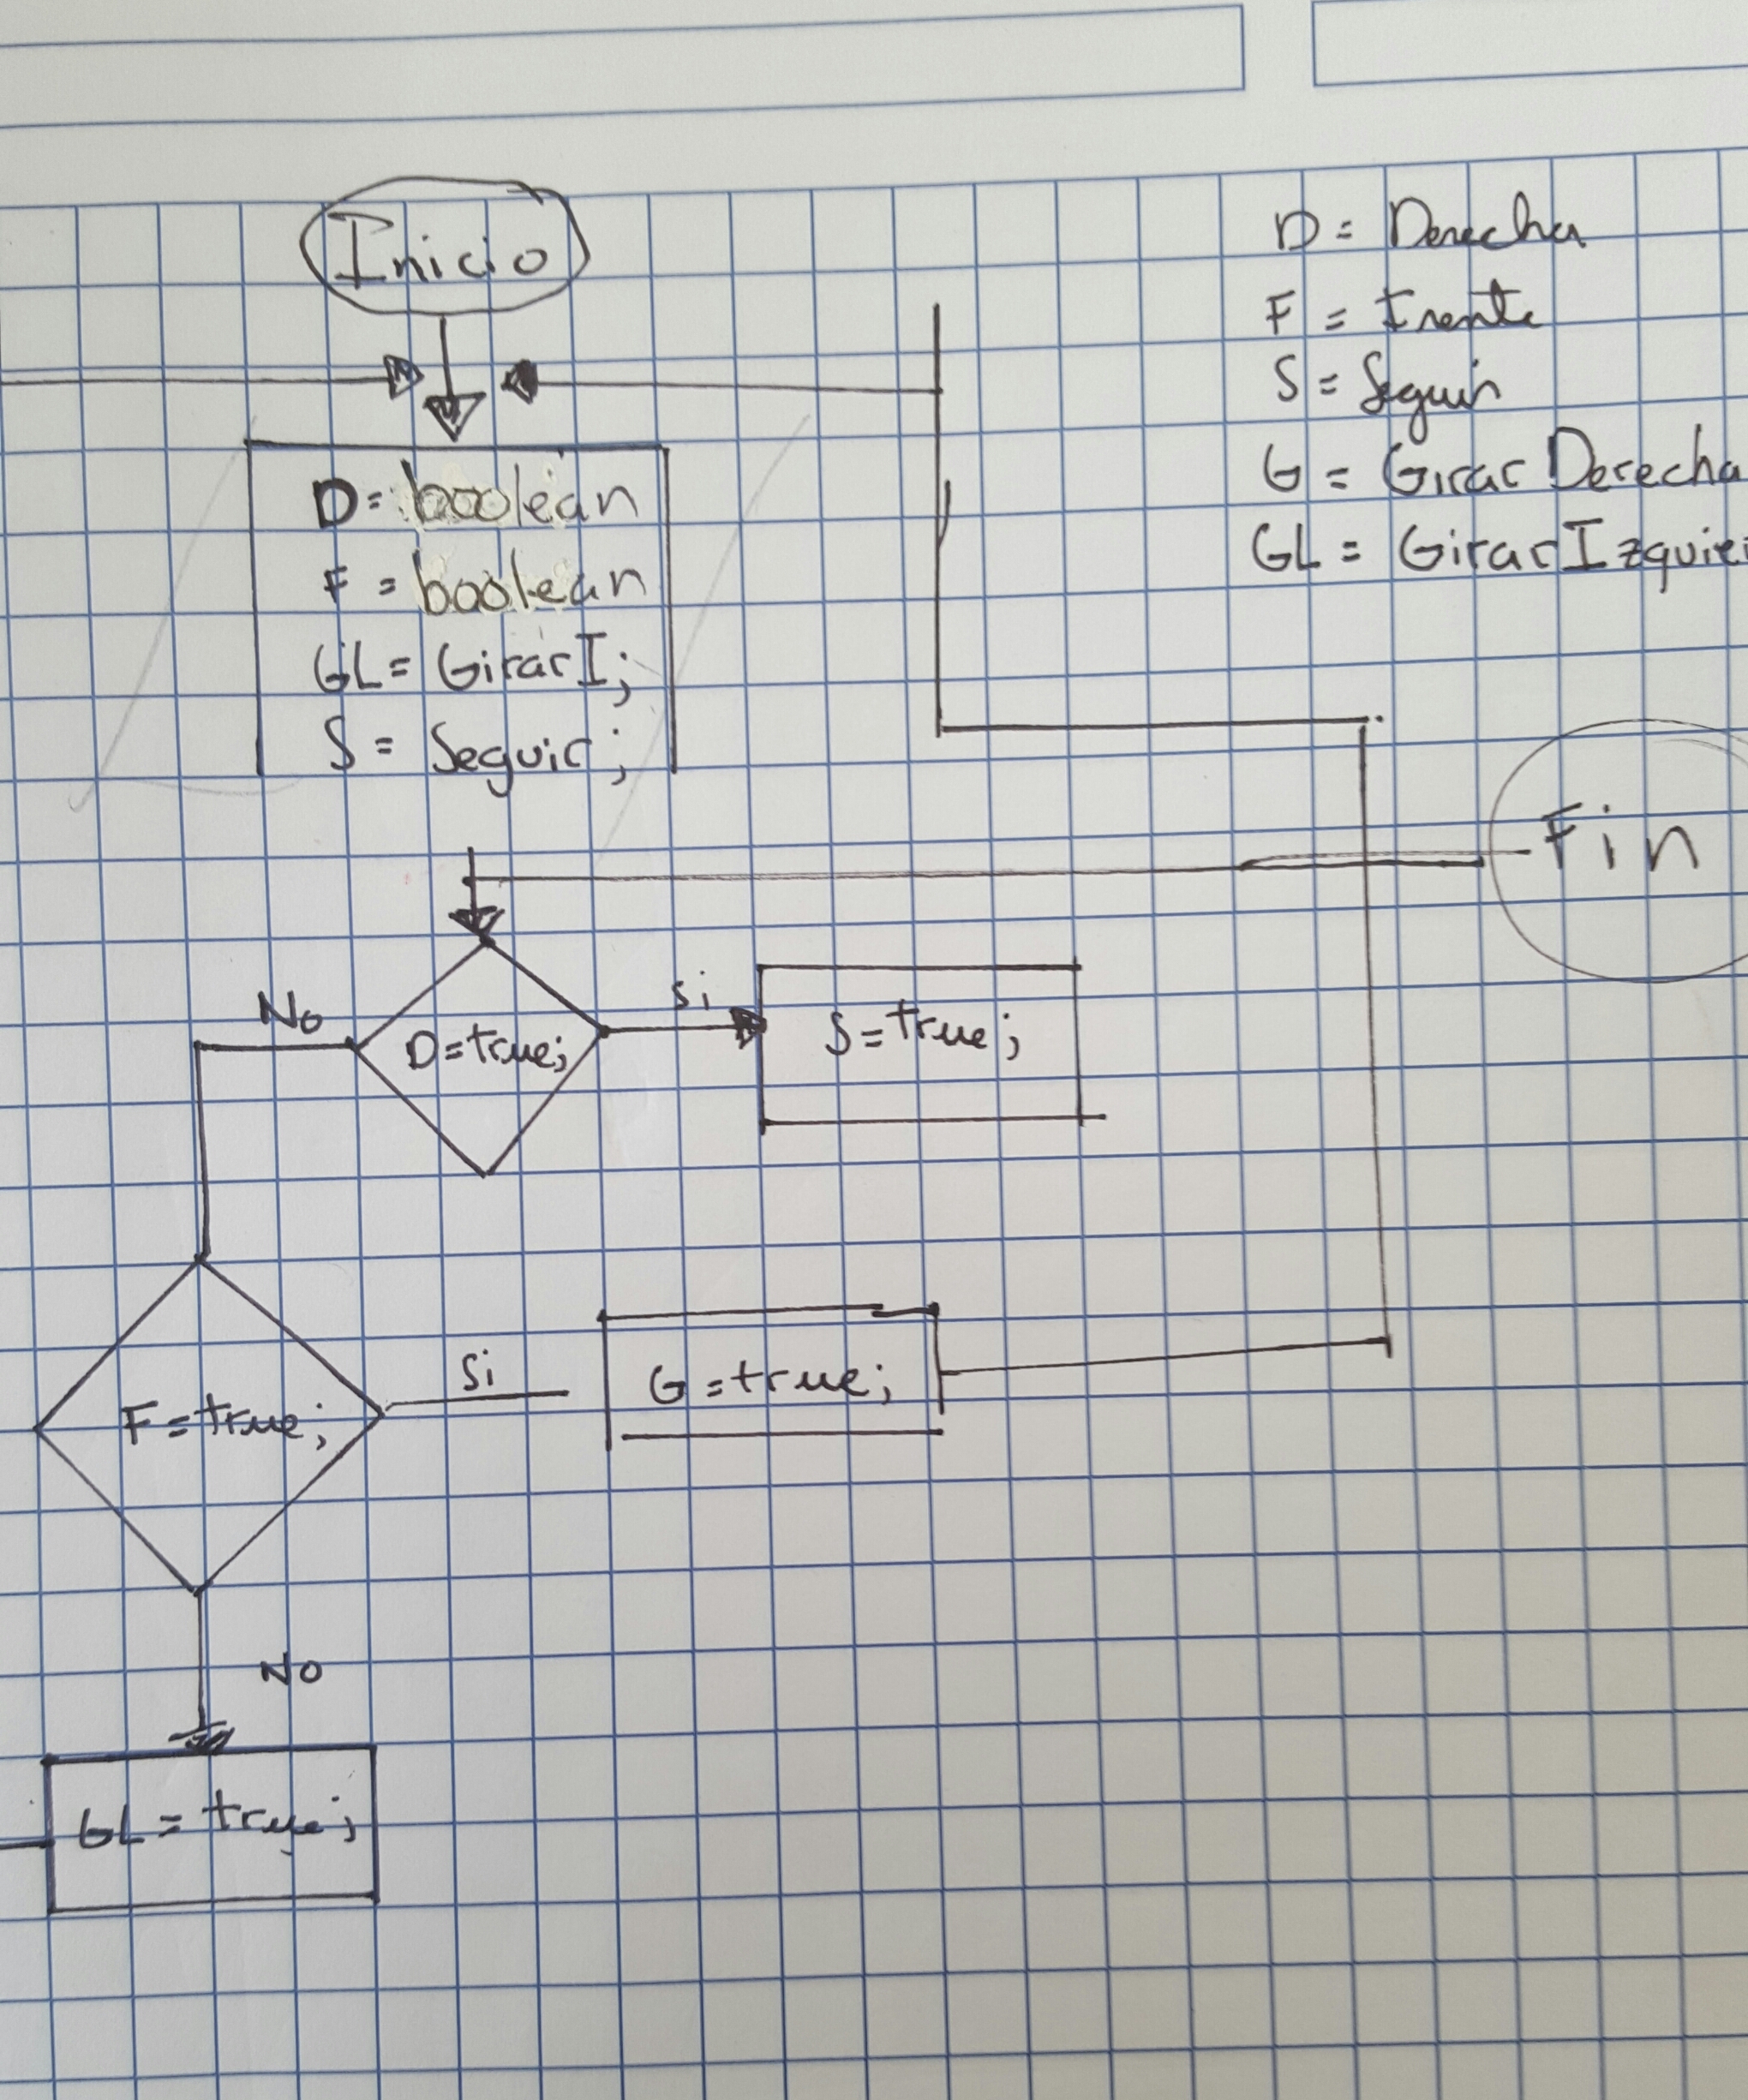 Inicio
D = Derecha
F = Frente
S = Seguir
G = Girar Derecha
GL = Girar Izquier
D = boolean
F = boolean
GL = Girar I;
S = Seguir;
Fin
No
si
D = true;
S = true;
Si
F = true;
G = true;
NO
GL = true;